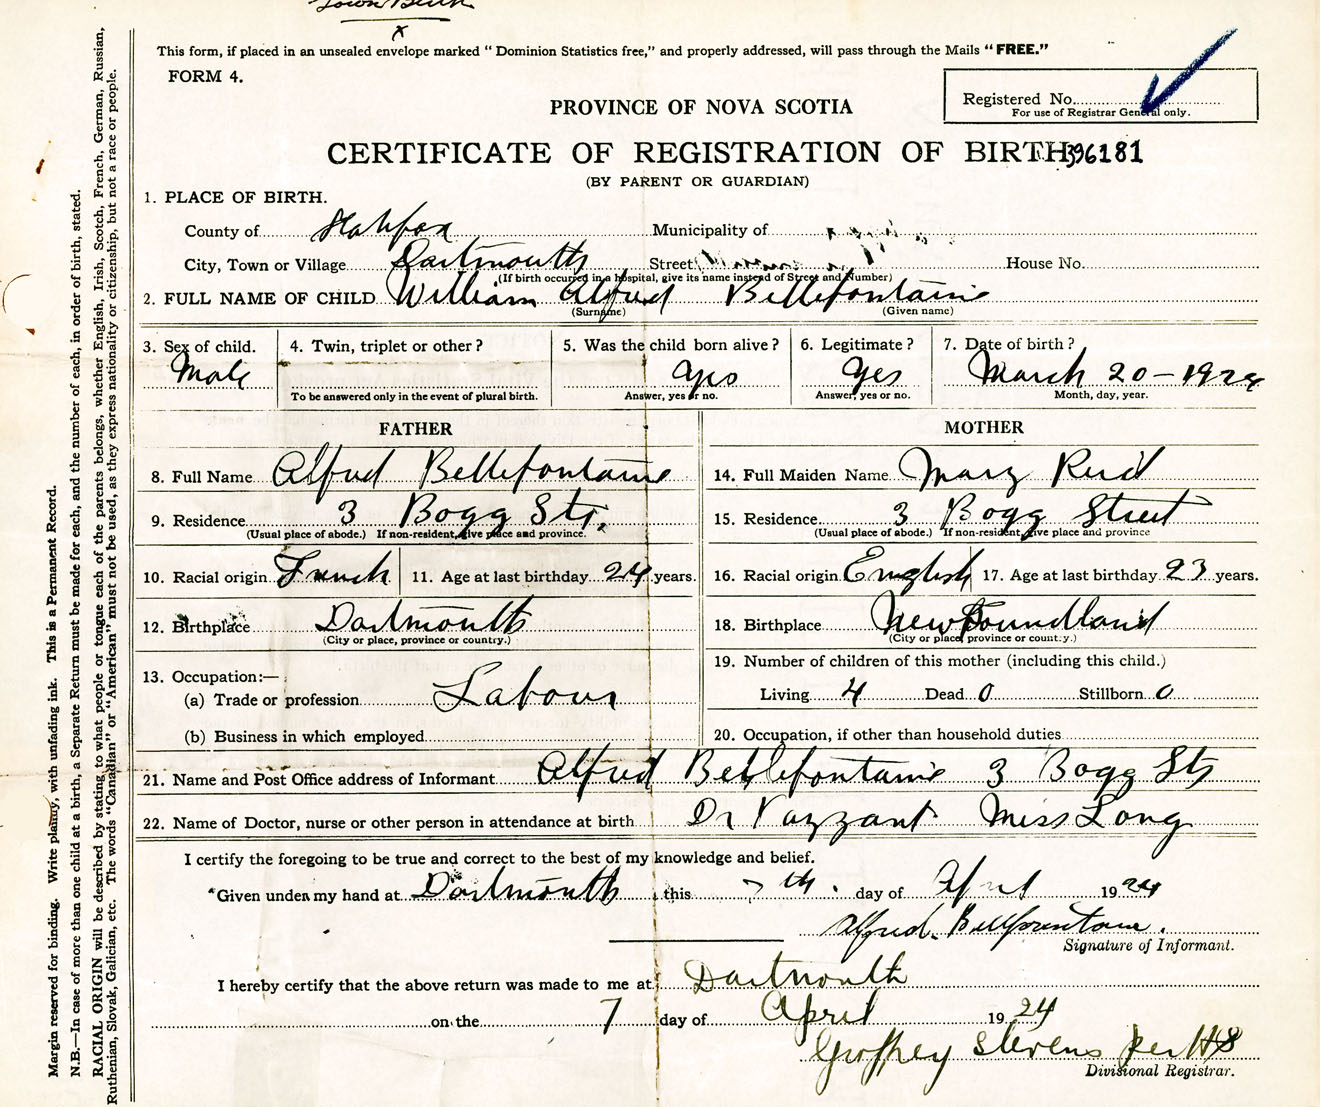 Town Birth
x
This form, if placed in an unsealed envelope marked "Dominion Statistics free," and properly addressed, will pass through the Mails "FREE."
FORM 4.
Registered No.
For use of Registrar General only.
PROVINCE OF NOVA SCOTIA
CERTIFICATE OF REGISTRATION OF BIRTH 396181
(BY PARENT OR GUARDIAN)
1. PLACE OF BIRTH.
County of Halifax Municipality of
City, Town or Village Dartmouth Street House No.
(If birth occurred in a hospital, give its name instead of Street and Number)
2. FULL NAME OF CHILD William Alfred Bellefontaine
(Surname) (Given name)
3. Sex of child. 4. Twin, triplet or other? 5. Was the child born alive? 6. Legitimate? 7. Date of birth?
Male Yes Yes March 20-1924
To be answered only in the event of plural birth. Answer, yes or no. Answer, yes or no. Month, day, year.
FATHER MOTHER
8. Full Name Alfred Bellefontaine 14. Full Maiden Name Mary Reid
9. Residence 3 Bogg Str. 15. Residence 3 Bogg Street
(Usual place of abode.) If non-resident, give place and province. (Usual place of abode.) If non-resident, give place and province
10. Racial origin French 11. Age at last birthday 24 years. 16. Racial origin English 17. Age at last birthday 23 years.
12. Birthplace Dartmouth 18. Birthplace Newfoundland
(City or place, province or country.) (City or place, province or country.)
13. Occupation:— 19. Number of children of this mother (including this child.)
(a) Trade or profession Labour Living 4 Dead 0 Stillborn 0
(b) Business in which employed 20. Occupation, if other than household duties
21. Name and Post Office address of Informant Alfred Bellefontaine 3 Bogg Str
22. Name of Doctor, nurse or other person in attendance at birth Dr Vazzant Miss Long
I certify the foregoing to be true and correct to the best of my knowledge and belief.
Given under my hand at Dartmouth this 7th. day of April 1924
Alfred. Bellfountane.
Signature of Informant.
I hereby certify that the above return was made to me at Dartmouth
on the 7 day of April 1924
Geoffrey Stevens per HS
Divisional Registrar.
Margin reserved for binding. Write plainly, with unfading ink. This is a Permanent Record.
N.B.—In case of more than one child at a birth, a Separate Return must be made for each, and the number of each, in order of birth, stated.
RACIAL ORIGIN will be described by stating to what people or tongue each of the parents belongs, whether English, Irish, Scotch, French, German, Russian,
Ruthenian, Slovak, Galician, etc. The words "Canadian" or "American" must not be used, as they express nationality or citizenship, but not a race or people.